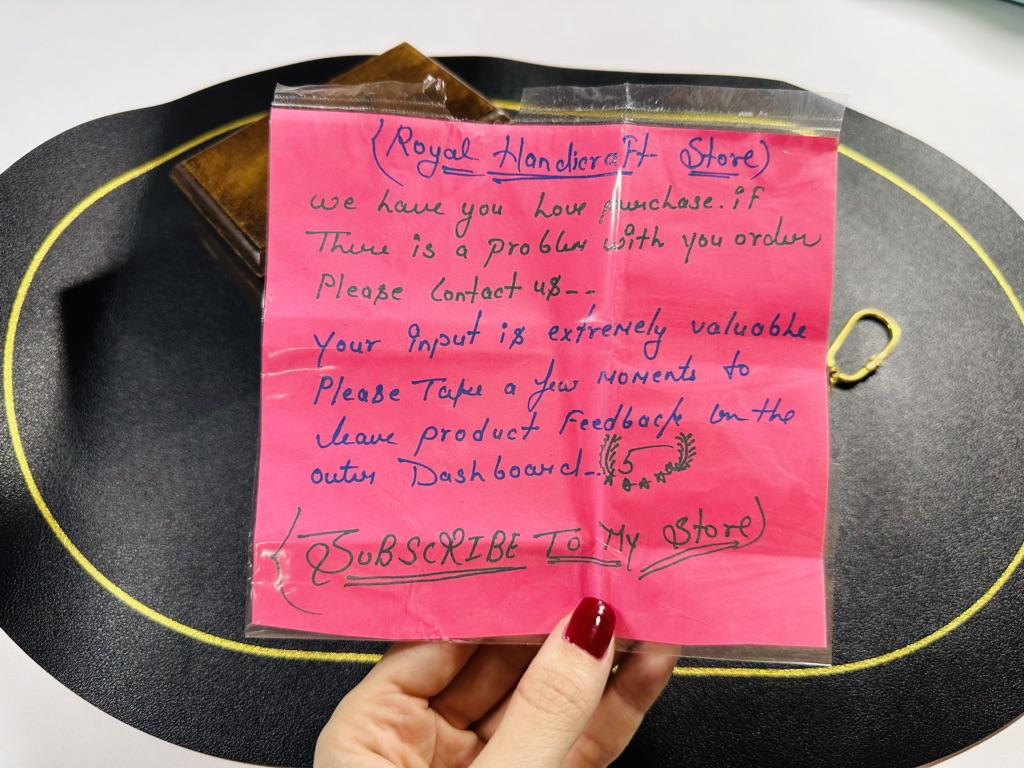 (Royal Handicraft Store)
we have you Love purchase. if
There is a problem with you order
Please Contact us--
your Input is extremely valuable
Please Take a few MOMENTS to
leave product Feedback on the
outer Dashboard-- 5
(SUBSCRIBE TO My Store)